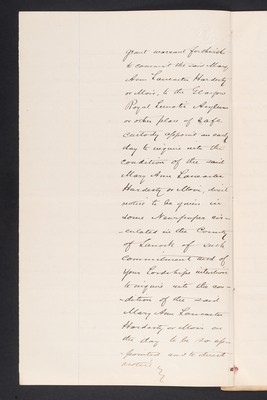 grant warrant forthwith
to commit the said Mary
Ann Lancaster Hardesty
or Moir, to the Glasgow
Royal Lunatic Asylum
or other place of safe
custody appoint an early
day to inquire into the
condition of the said
Mary Ann Lancaster
Hardesty or Moir, direct
notice to be given in
some Newspaper cir-
-culated in the County
of Lanark of such
commitment and of
your Lordships intention
to inquire into the con-
-dition of the said
Mary Ann Lancaster
Hardesty or Moir on
the day to be so ap-
-pointed and to direct